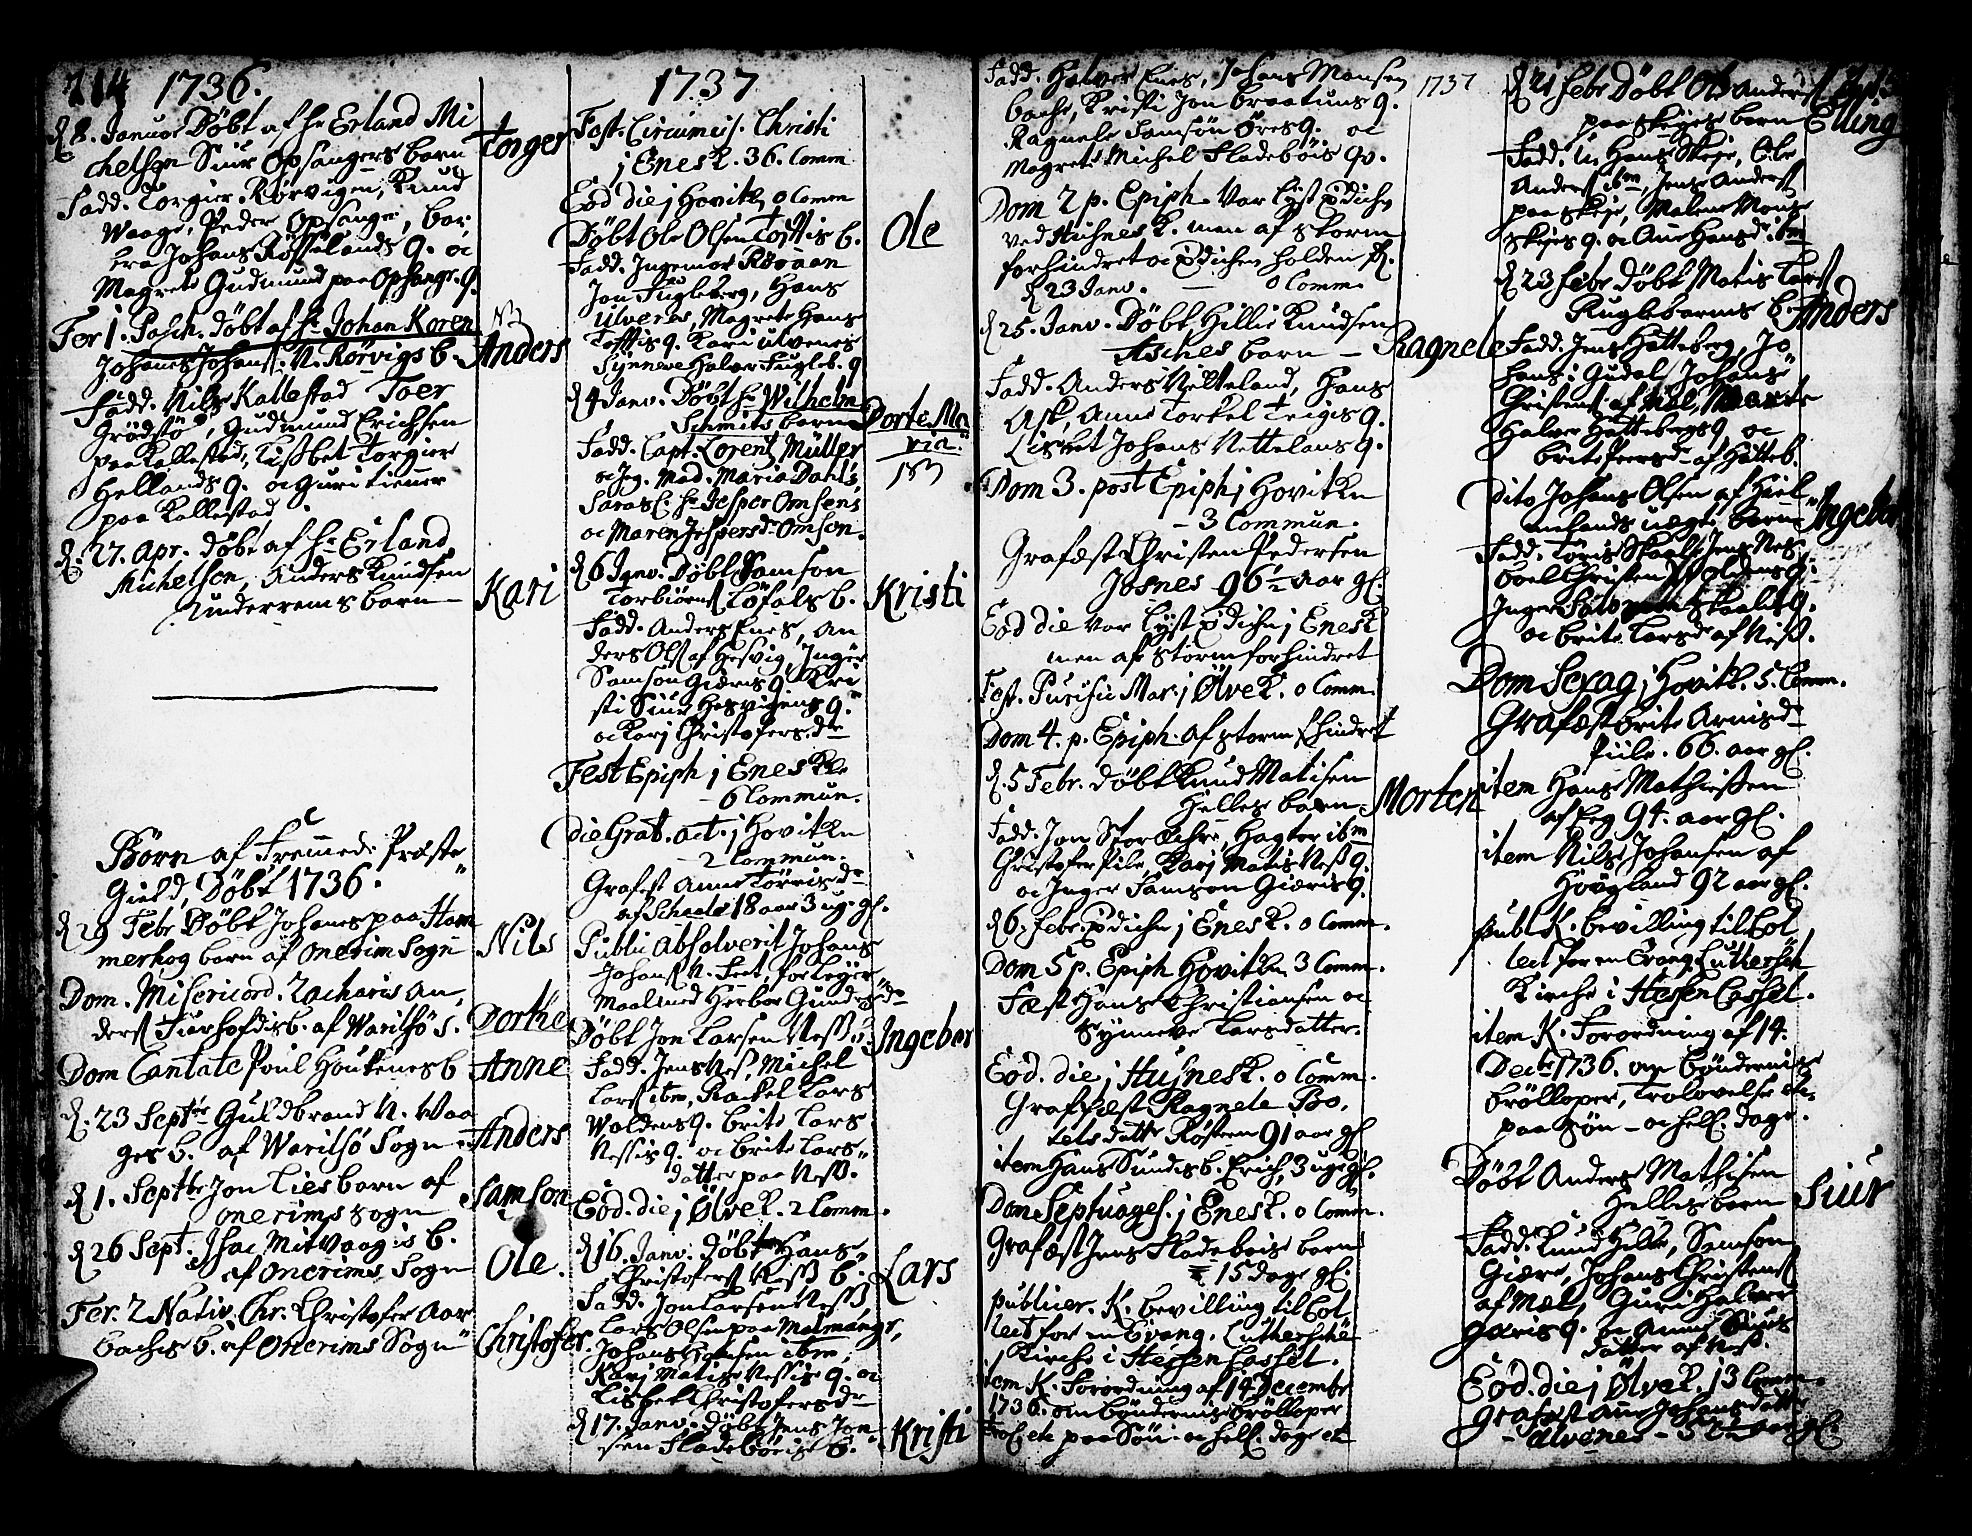 214 1736.
d 8. Januar Døbt af hr Erland Mi
chelsøn Siur Opsangers barn
Torger
Fadd. Torgier Rørvigen, Knud
Waage, Peder Opsange, bar
bra Johans Røsselands q. oc
Magrete Gudmund paa Opsangs. q.
Fer 1. Pasch. døbt af hr Johan Koren
Johanes Johans. N. Rørvigs b.
Anders
Fadd. Nils Kallestad Toer
Grødsø, Gudmund Erichsen
paa Kallestad, Lisbet Torgier
Hellands q. oc Guri tienner
paa Kallestad.
d. 27. Apr. døbt af hr Erland
Michelsen, Anders Knudsen
Kari
Underrems barn
Børn af Fremmede Præste
Gield, Døbt 1736.
d 29 Febr Døbt Johanes paa Ham
merhog barn af Onerim Sogn
Nils
Dom. Misericord. Zacharis An
ders. Fiurhofdis b. af Warilsø S.
Dorthe
Dom Cantate Poul Houkenes b
Anne
d. 23 Septbr Guldbrand N. Waa
ges b. af Warilsø Sogn
Anders
d 1. Septbr Jon Lies barn af
Onerims sogn
Samson
d 26 Sept. Isac Mitvaagis b.
af Onerims Sogn
Ole.
Fer. 2 Nativ. Chr. Christofer Aar
bachs b. af Onerims Sogn
Christofer
1737
Fest. Circumcis. Christi
j Enes K. 36. Comm
Eod die j Hovitkn 0 Comm
Døbt Ole Olsen Toftis b.
Ole
Fadd. Ingemor Røraan
Jon Fugleberg, Hans
Ulvenes, Magrete Hans
Toftis q. Kari ulvenes
Synneve Halvor Fugleb. q
d 4 Janv. Døbt hr Wilhelm
Schmits barn
Dorte Ma
ria
Fadd. Capt. Lorent Müller
oc Jg. Mad. Maria Dahls,
Saras. hr Jesper Omsens
oc Maren Jespersdr Omson.
d 6 Janv. Døbt Samson
Torbiørns Løfals b.
Kristi
Fadd. Anders Enes, An
ders Ols af Hesvig, Inger
Samson Giæris q. Kri
sti Siur Hesvigens q.
oc Karj Christofers. dr
Fest Epiph j Enes Kle
6 Commun.
die Grat. act. j Hovitkn
2 Commun.
Grafest Anne Tørrisdr
af Scheele 18 aar 3 uge gl.
Public Absolverit Johans
Johans N. Leet, for Leyer
maal med Herbor Gunders dr
Døbt Jon Larsen Ness b.
Ingebor
Fadd. Jens Nes, Michel
Lars ibm, Rackel Lars
Woldens q. Brite Lars
Nessis q. oc Brite Lars
datter paa Ness.
Eod. die j Ølve K. 2 Comm.
d 16. Janv. døbt Hans
Christofers Ness b.
Lars
Fadd. Jon Larsen Ness,
Lars Olsen paa Malmanger,
Johans Hansen ibm,
Karj Matis Nessis q. oc
Lisbet Christofersdr
d 17. Janv. døbt Jens Jon
sen Fladebøris b.
Kristi
Fadd. Halvor Enes, Johans Monsen
Bache, Kristi Jon Braatuns q.
Ragnele Samsøn Øres q. oc
Magrete Michel Fladebøis qv.
Dom 2 p. Epiph. Var lyst
ved Husnes K. men af Storm
forhindret oc holden
d 23 Janv. 0 Comm.
d 25. Janv. Døbt Hillie Knudsen
Asches barn
Ragnele
Fadd. Anders Netteland, Hans
Ask, Anne Torkel Teigis q.
Lisbet Johans Nettelans q.
Dom 3. post Epiph j Hovitkn
3 Commun.
Grafæst Christen Pedersen
Josnes 96½ aar gl.
Eod die Var lyst j Enes K
men af storm forhindret
Fest. Purific Mar. j Ølve K. 0 Comm.
Dom 4. p. Epiph. Af storm hindret
d. 5 Febr. døbt Knud Matisen
Helles barn
Morten
Fadd. Jon Stor Hagtor ibm
Christofer Pile, Karj Matis Ness q.
oc Inger Samson Giæris q.
d 6. Febr. j Enes K. 0 Comm.
Dom 5 p. Epiph Hovitkn 3 Comm.
Fæst Hans Christiansen oc
Synneve Larsdatter.
Eod. die j Husnes K. 0 Comm.
Graffæst Ragnele Bo,
telsdattr Røsten 91 aar gl
item Hans Sundis b. Erich, 3 uger gl.
Dom Septuages. j Enes K. 0 Comm.
Grafæst Jens Fladebois barn
15 dage gl.
Publicer. K. bevilling til Col
lect for en Evang. Luthersche
Kirche i Hessen Cassel.
item K. Forordning af 14 Decembr
1736. om bøndernis brølloper
Trol. etc paa Søn. oc hell. dage etc
1737
d 21 Febr Døbt Ole Anders
paa Skejes barn
Elling
Fadd. Hans Skeje, Ole
Anders ibm, Jens Anders
paa Skeje, Malene Mons
Skejes q. oc Ane Hansdr. ibm
d 23 Febr Døbt Matis Lars
Kuglebarms b.
Anders
Fadd. Jens Hatteberg, Jo
hans i Gudal, Johans
Christens af Mæl, Marite
Halvor Hattebergs q oc
Brite Peersdr af Hatteb.
Dito Johans Olsen af Hiel
melands uægte barn
Ingebor
Fadd. Tøris Skaale, Jens Nes,
Boel Christen Woldens q.
Inger Salomon Skaales q.
oc Brite Larsdr af Ness.
Dom Sexag j Hovitk. 5. Comm.
Grafæst Brite Arnisdr
Piile. 66. aar gl.
item Hans Mathissen
af Eeg 94. aar gl.
item Nils Johansen af
Høugland 92 aar gl.
Publ. K. bevilling til Col
lect for en Evang. Lutherske
Kirche i Hessen Cassel.
item K. Forordning af 14.
Decbr 1736. om bøndernis
brølloper, Trolovelse etc,
paa Søn - oc hell. dage.
Døbt Anders Mathisen
Hellis barn
Siur
Fadd. Knud Helle, Samson
Giære, Johans Christens
af Mæl, Guri Halvor
Giæris q. oc Anne Siurs
datter af Ness.
Eod. die j Ølve K. 13 Comm.
Grafæst Anne Johansdatter
Alvenes - 52 aar gl.